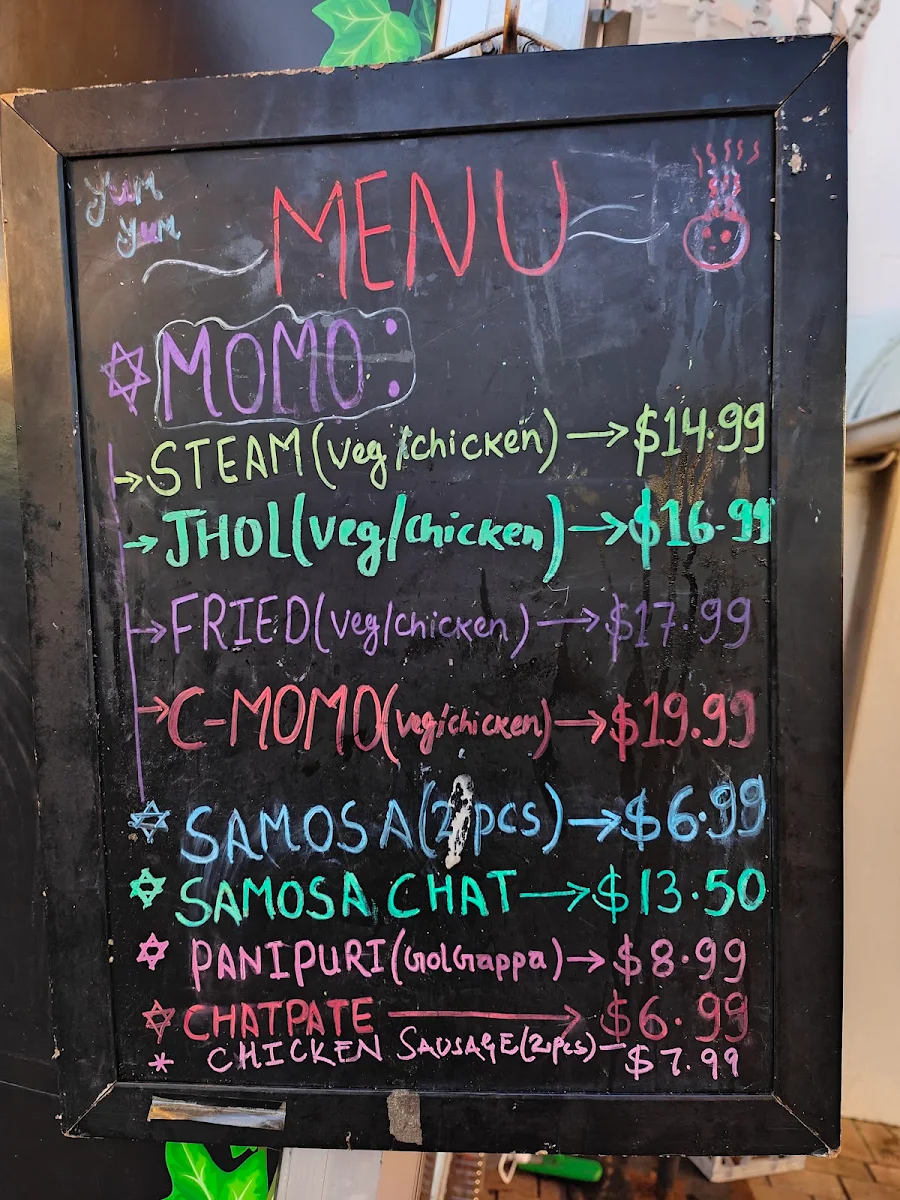 Yum
Yum
MENU
MOMO:
STEAM (veg/chicken) → $14.99
JHOL (veg/chicken) → $16.99
FRIED (veg/chicken) → $17.99
C-MOMO (veg/chicken) → $19.99
SAMOSA (2 pcs) → $6.99
SAMOSA CHAT → $13.50
PANIPURI (GolGappa) → $8.99
CHATPATE → $6.99
* CHICKEN SAUSAGE (2pcs) - $7.99